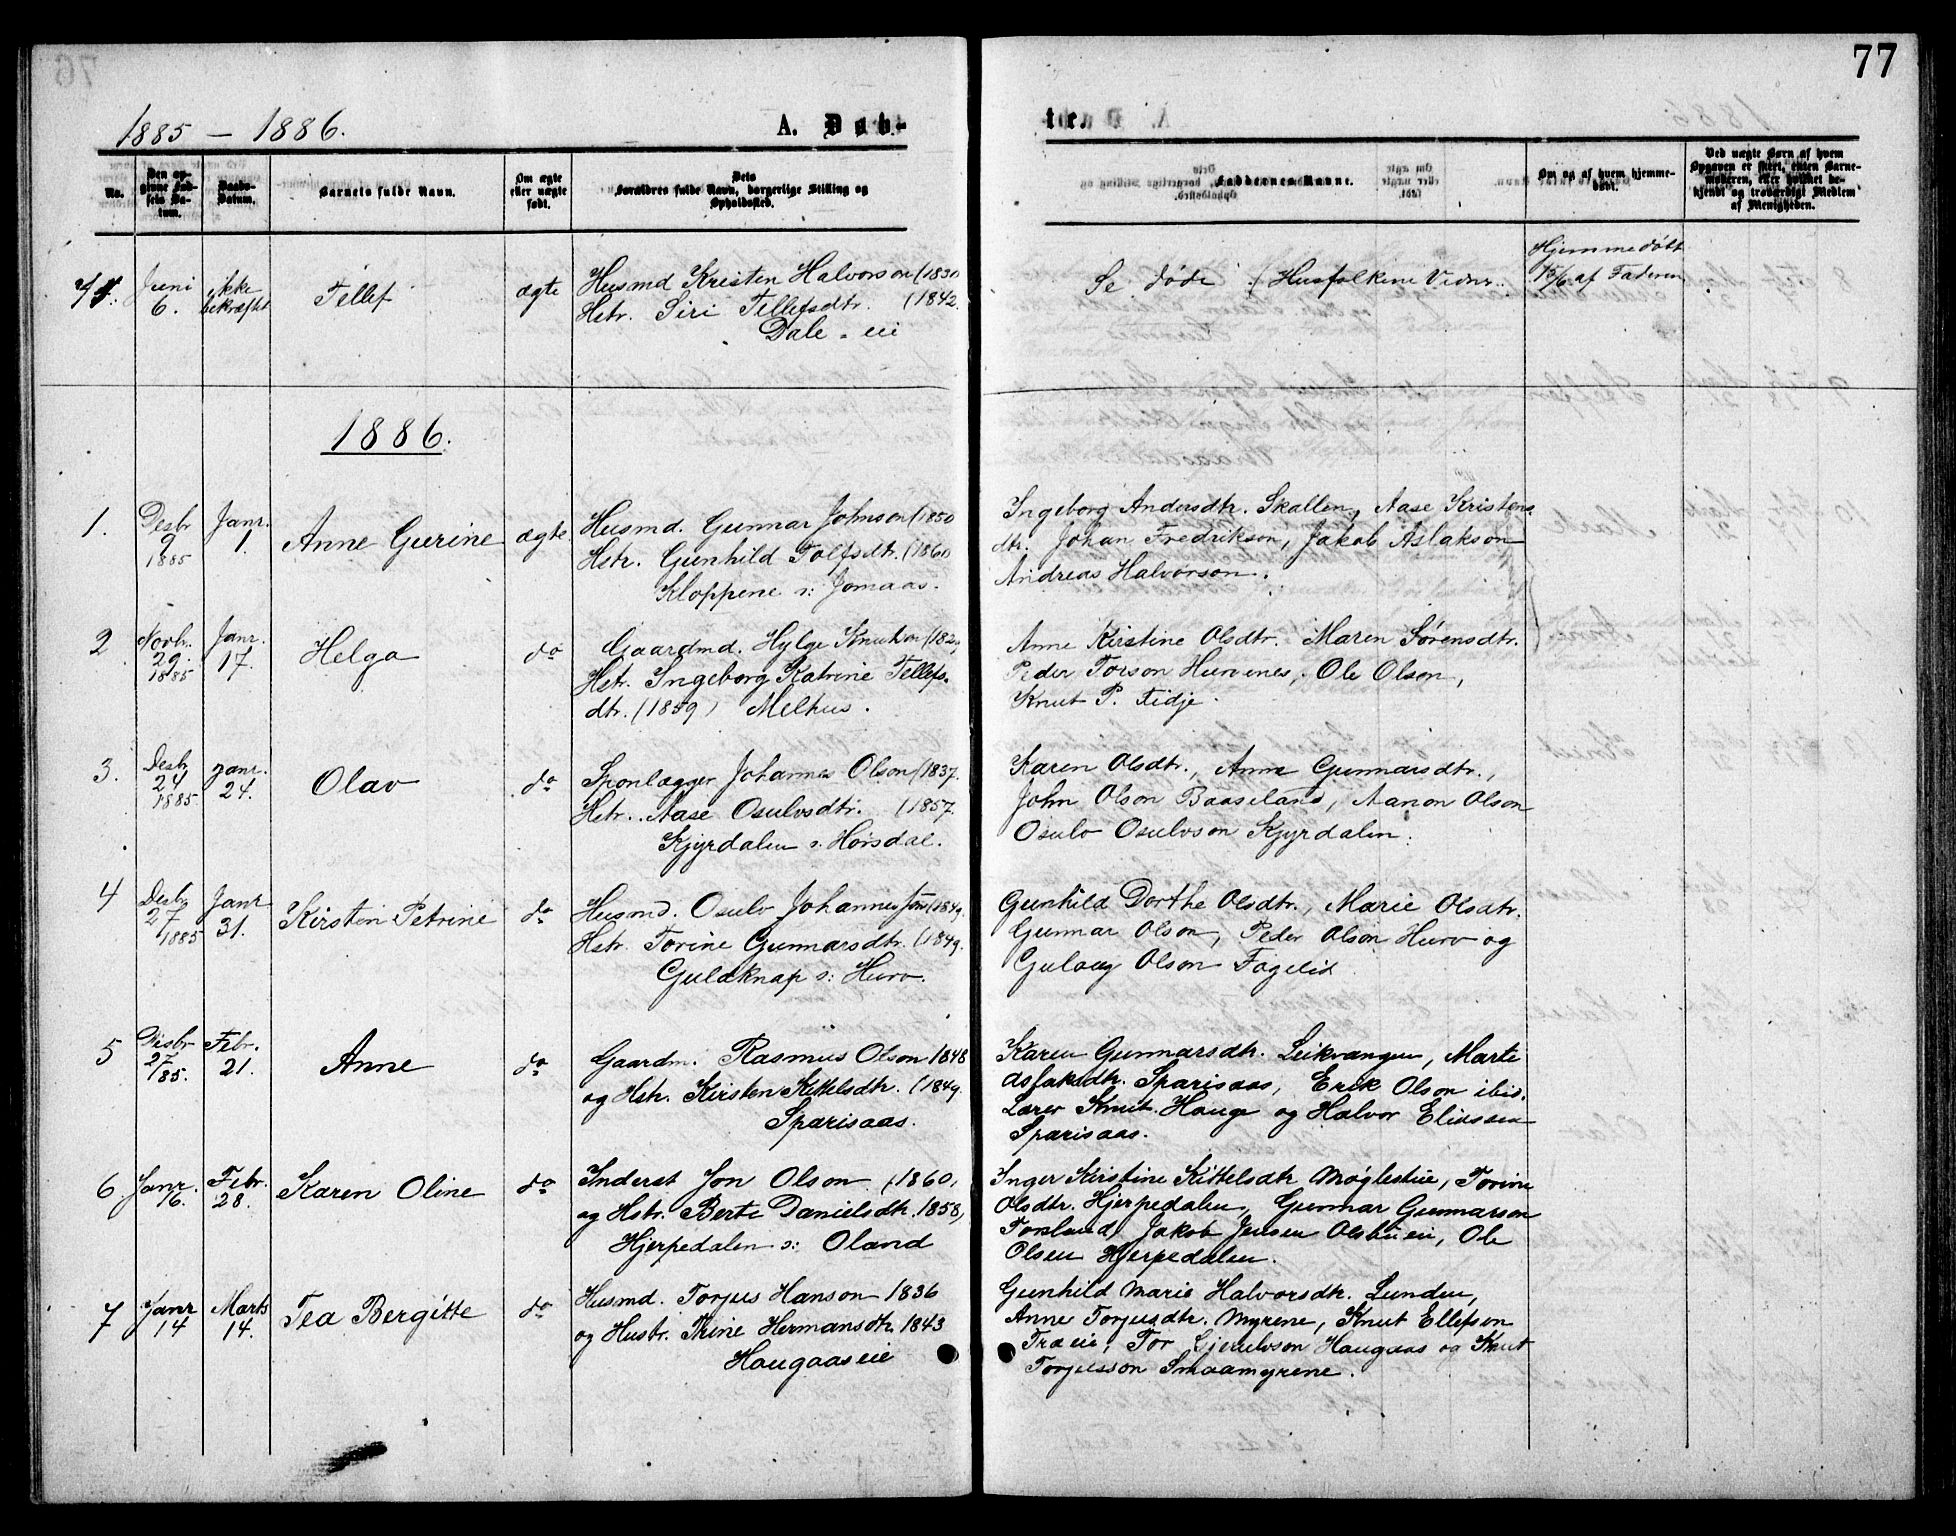 77
1885 – 1886.
A. Døb-
te.
No.
Den op-
givne Fød-
sels Da-
tum.
Daabs-
Datum.
Barnets fulde Navn.
Om ægte
eller uægte
født.
Dets
Forældres fulde Navn, borgerlige Stilling og
Opholdssted.
Faddernes Navne.
Om og af hvem hjemme-
døbt.
Ved uægte Børn af hvem
Opgaven er skeet, enten Barne-
moderen, eller hvilket be-
kjendt og troværdigt Medlem
af Menigheden.
Juni
6.
ikke
bekræftet
Tellef
ægte
Husmd Kristen Halvorson (1830
Hstr. Siri Tellefsdtr. (1842.
Dale-eie
Se døde (Husfolkene Vidnr.
Hjemmedøbt
af Faderen
1886.
1.
Desbr
9
1885
Janr.
1.
Anne Gurine
ægte
Husmd. Gunnar Johnson (1850
Hstr. Gunhild Tolfsdtr. (1860
Kloppene s: Jomaas.
Ingeborg Andersdtr. Skallen, Aase Kristens
dtr. Johan Fredrikson, Jakob Aslakson
Andreas Halvorson.
2
Novbr.
29.
1885
Janr.
17.
Helga
do
Gaardmd. Hylge Knutson (1829
Hstr. Ingeborg Katrine Tellefs.
dtr. (1859) Melhus.
Anne Kirstine Olsdtr. Maren Sørensdtr.
Peder Torson Hurvenes, Ole Olson,
Knut P. Fidje.
3.
Desbr
24
1885
Janr.
24.
Olav
do
Sponlægger Johannes Olson (1837.
Hstr. Aase Osulvsdtr. (1857.
Kjyrdalen s. Hørsdal.
Karen Olsdtr., Anne Gunnarsdtr.,
John Olson Baaseland, Aanon Olson
Osulv Osulvson Kjyrdalen.
4
Desbr
27
1885
Janr
31.
Kirsten Petrine
do
Husmd. Osulv Johannesson (1849.
Hstr. Torine Gunnarsdtr. (1849.
Guldknap s: Hurv.
Gunhild Dorthe Olsdtr., Marie Olsdtr.
Gunnar Olson, Peder Olson Hurv og
Gulaug Olson Fagelid
5
Desbr
27
85.
Febr.
21.
Anne
do
Gaardm. Rasmus Olson 1848
og Hstr. Kirsten Kittelsdtr. (1849.
Sparisaas.
Karen Gunnarsdtr. Leikvangen, Marte
Sparisaas, Erik Olson ibid.
Lærer Knut Hauge og Halvor Eliassen
Sparisaas.
6
Janr.
16.
Febr.
28.
Karen Oline
do
Inderst Jon Olson (1860,
og Hstr. Berte Danielsdtr. 1858,
Hjerpedalen s: Oland
Inger Kirstine Kittelsdtr Møglestue, Torine
Olsdtr. Hjerpedalen, Gunnar Gunnarson
Torslund, Jakob Jensen Olsbueie, Ole
Olsen Hjerpedalen.
7
Janr
14
Marts
14.
Tea Bergitte
do
Husmd. Torjus Hanson 1836
og Hustr. Trine Hermansdtr. 1843
Haugaaseie
Gunhild Marie Halvorsdtr. Lunden,
Anne Torjusdtr. Myrene, Knut Ellefson
Træeie, Tor Haugaas og Knut
Torjusson Smaamyrene.